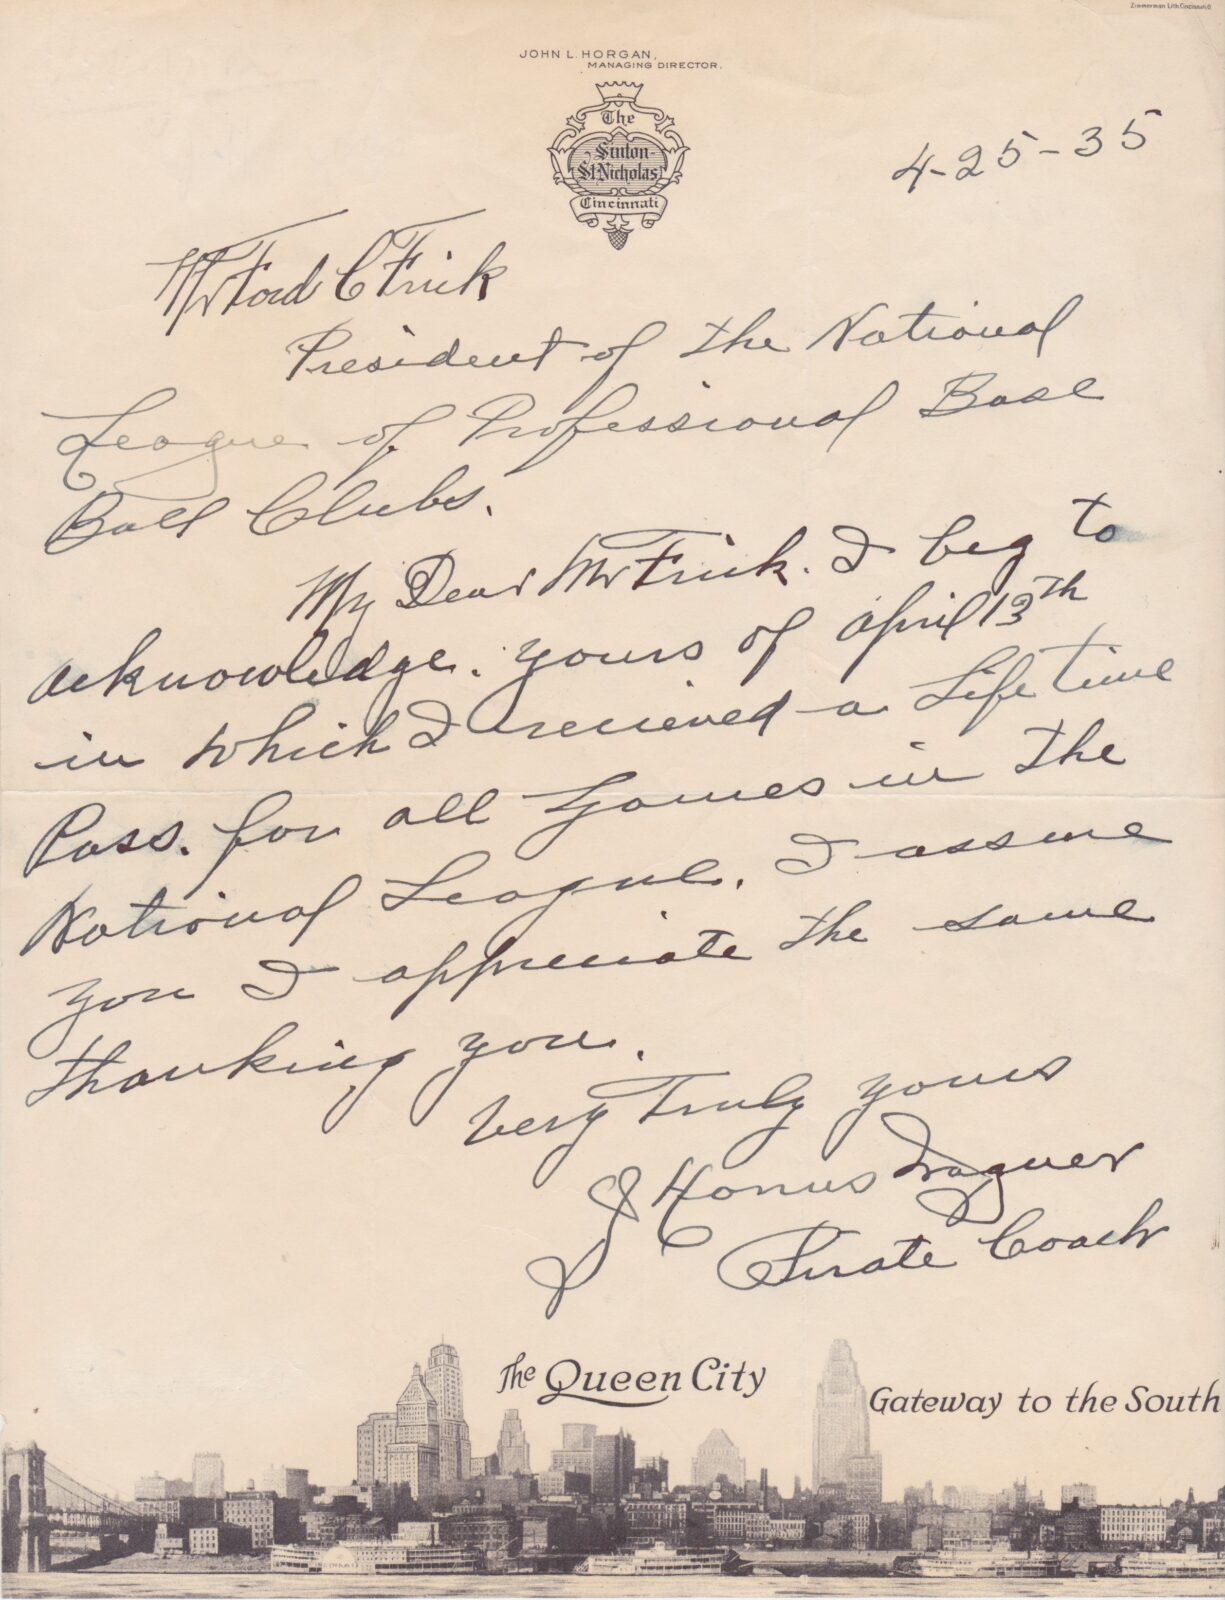 Zimmerman Lith. Cincinnati, O.
JOHN L. HORGAN,
MANAGING DIRECTOR.
The
Sinton
St Nicholas
Cincinnati
4-25-35
Mr Ford C Frick
President of the National
League of Professional Base
Ball Clubs.
My Dear Mr Frick. I beg to
acknowledge. yours of april 13th
in which I recieved a Life time
Pass. for all Games in the
National League. I assure
you I appreciate the same
thanking you.
Very Truly yours
J Honus Wagner
Pirate Coach
The Queen City
Gateway to the South